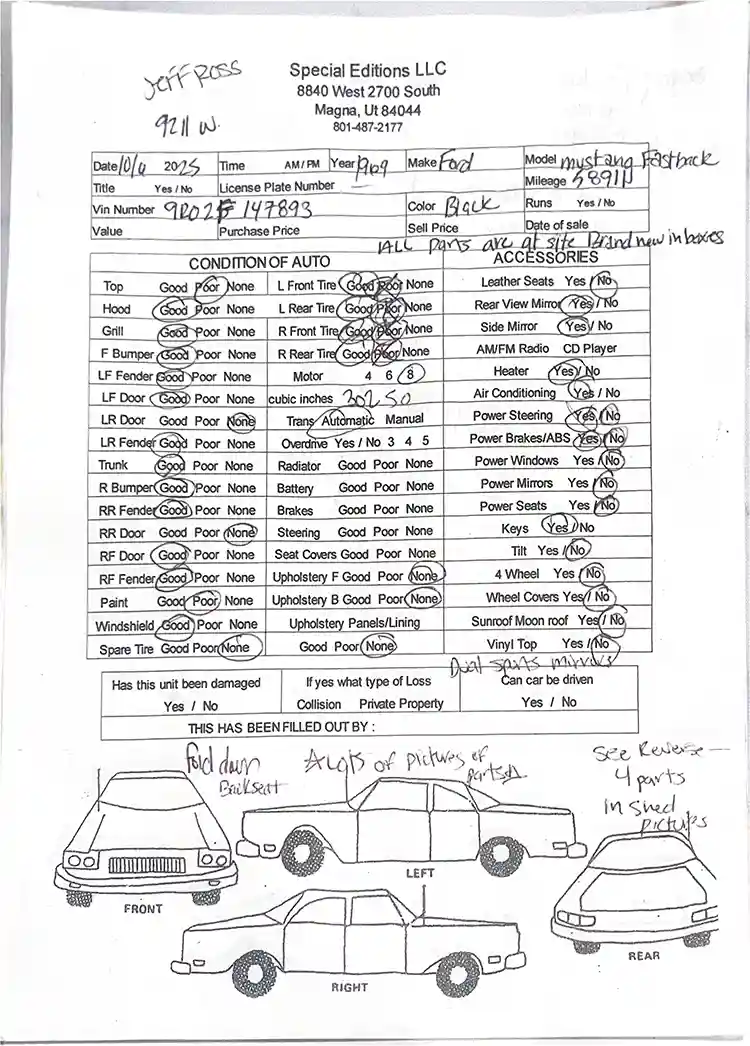 Jeff Ross
9211 W.
Special Editions LLC
8840 West 2700 South
Magna, Ut 84044
801-487-2177
Date 10/6 2025 Time AM / PM Year 1969 Make Ford Model Mustang Fastback
Title Yes / No License Plate Number Mileage 58911
Vin Number 9R02F 147893 Color Black Runs Yes / No
Value Purchase Price Sell Price Date of sale
ALL parts are at site Brand new in boxes
CONDITION OF AUTO ACCESSORIES
Top Good Poor None L Front Tire Good Poor None Leather Seats Yes / No
Hood Good Poor None L Rear Tire Good Poor None Rear View Mirror Yes / No
Grill Good Poor None R Front Tire Good Poor None Side Mirror Yes / No
F Bumper Good Poor None R Rear Tire Good Poor None AM/FM Radio CD Player
LF Fender Good Poor None Motor 4 6 8 Heater Yes / No
LF Door Good Poor None cubic inches 302 50 Air Conditioning Yes / No
LR Door Good Poor None Trans Automatic Manual Power Steering Yes / No
LR Fender Good Poor None Overdrive Yes / No 3 4 5 Power Brakes/ABS Yes / No
Trunk Good Poor None Radiator Good Poor None Power Windows Yes / No
R Bumper Good Poor None Battery Good Poor None Power Mirrors Yes / No
RR Fender Good Poor None Brakes Good Poor None Power Seats Yes / No
RR Door Good Poor None Steering Good Poor None Keys Yes / No
RF Door Good Poor None Seat Covers Good Poor None Tilt Yes / No
RF Fender Good Poor None Upholstery F Good Poor None 4 Wheel Yes / No
Paint Good Poor None Upholstery B Good Poor None Wheel Covers Yes / No
Windshield Good Poor None Upholstery Panels/Lining Sunroof Moon roof Yes / No
Spare Tire Good Poor None Good Poor None Vinyl Top Yes / No
Dual sports mirrors
Has this unit been damaged If yes what type of Loss Can car be driven
Yes / No Collision Private Property Yes / No
THIS HAS BEEN FILLED OUT BY :
Fold down
Backseat
A lots of pictures of
parts
See Reverse —
4 parts
in shed
pictures
FRONT
LEFT
RIGHT
REAR